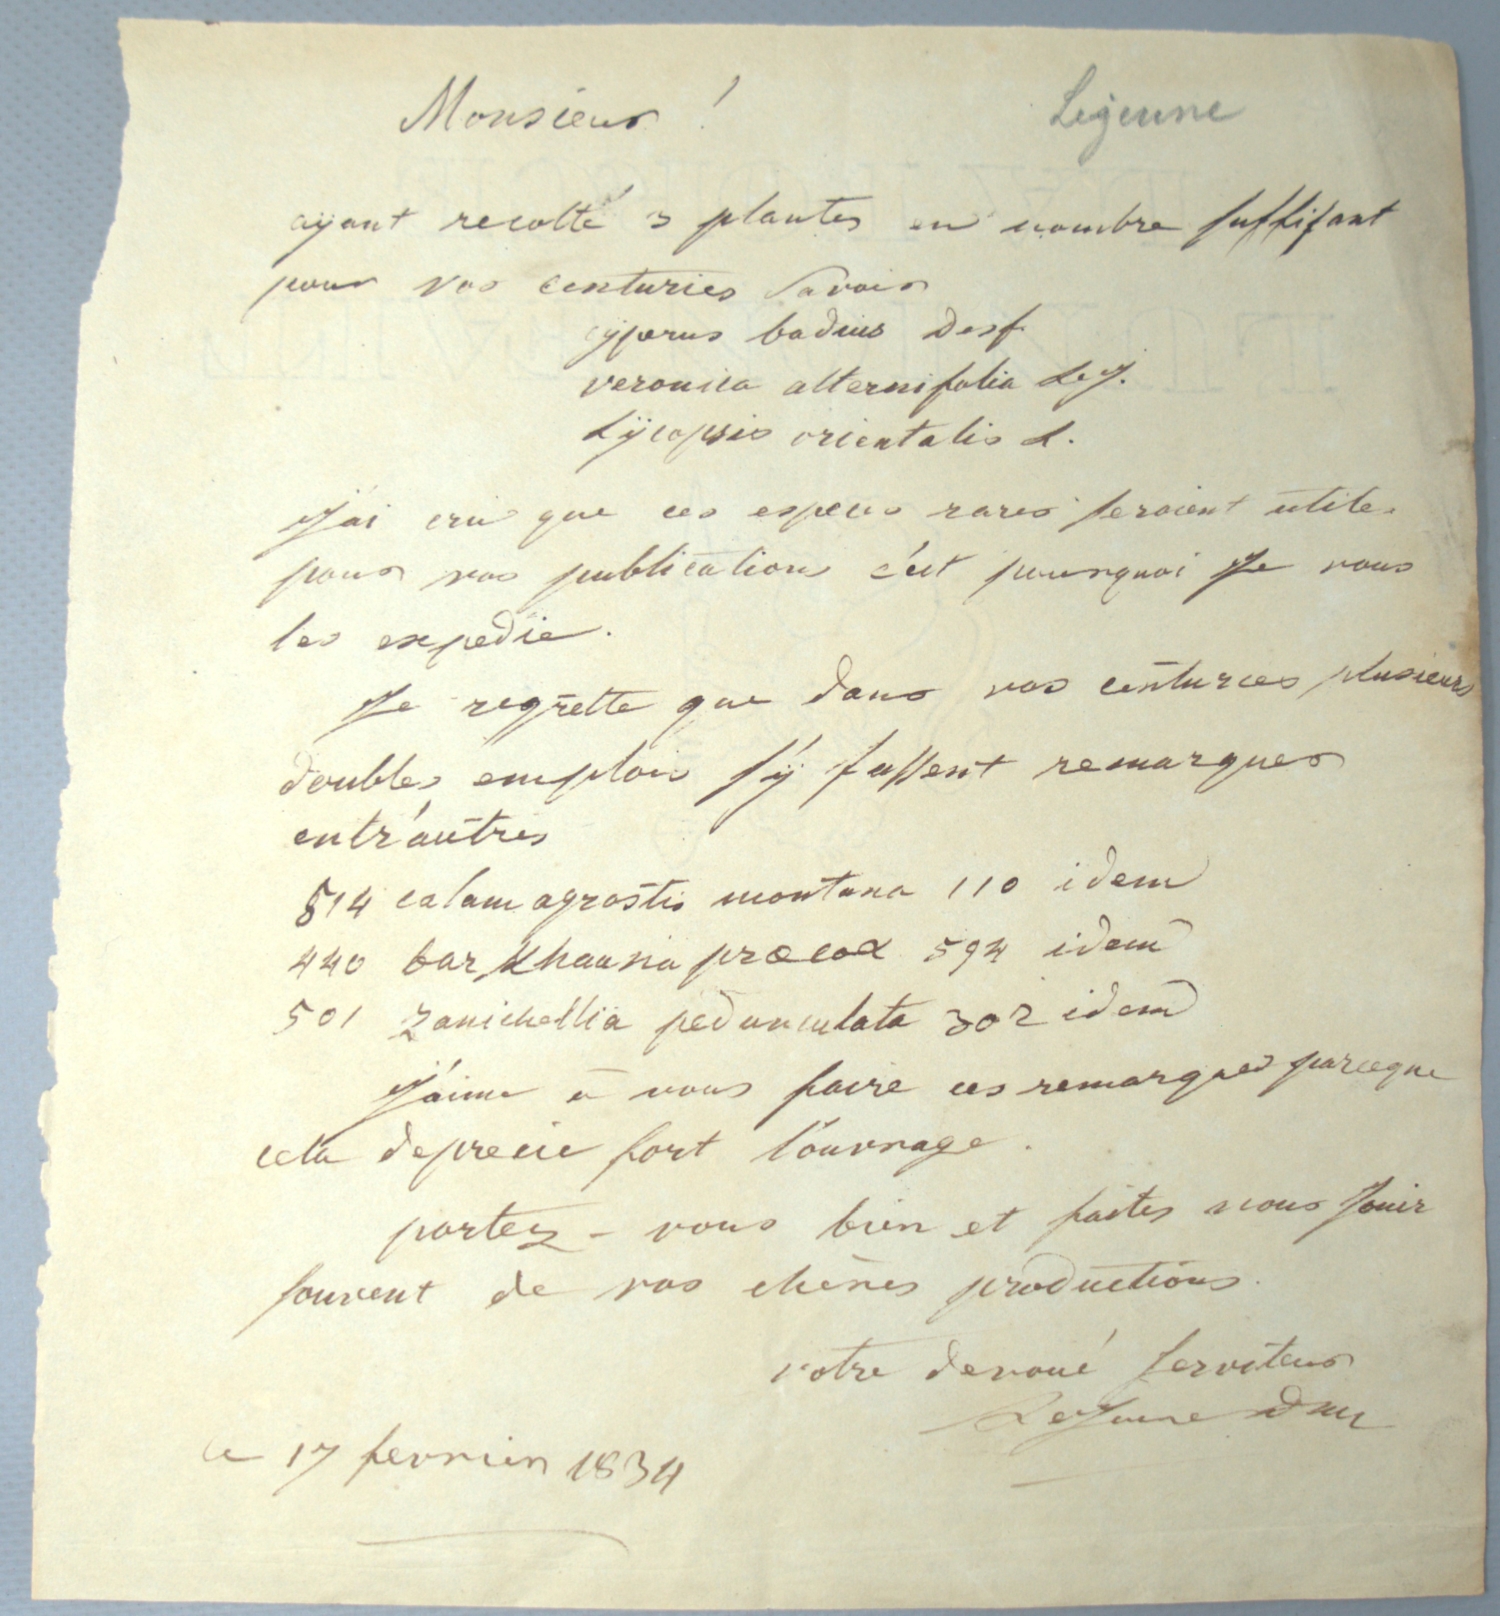 Monsieur !
Lejeune
ayant recolté 3 plantes en nombre suffisant
pour vos centuries Savoir
cÿperus badius Desf
veronica alternifolia Lej.
Lÿcopsis orientalis L.
J'ai cru que ces especes rares seroient utiles
pour vos publications c'est pourquoi Je vous
les expedie.
Je regrette que dans vos centuries plusieurs
doubles emplois s'ÿ fassent remarquer
entr'autres
514 calamagrostis montana 110 idem
440 barkhausia præcox 594 idem
501 zanichellia pedunculata 302 idem
J'aime a vous faire ces remarques parceque
cela deprecie fort l'ouvrage.
portez-vous bien et faites nous Jouir
souvent de vos chères productions.
votre devoué serviteur
LeJeune Dm
ce 17 fevrier 1834